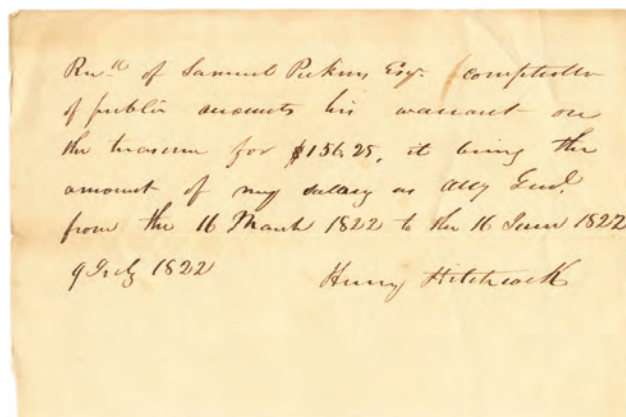 Recd of Samuel Pickens Esq. comptroller
of public accounts his warrant on
the treasurer for $156.25, it being the
amount of my salary as Atty Genl.
from the 16 March 1822 to the 16 June 1822
9 July 1822 Henry Hitchcock